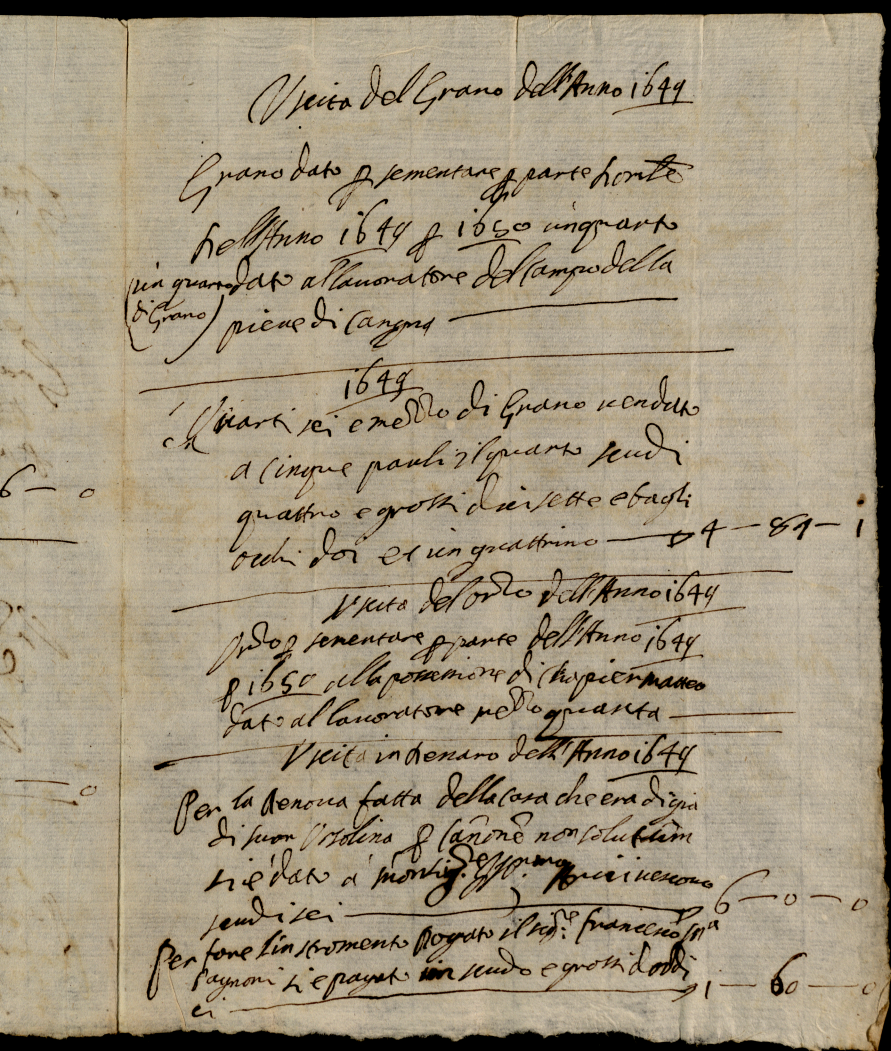 Uscita del Grano dell'Anno 1649
Grano dato p sementare p parte
dell'Anno 1649 p 1650 un quarto
(un quarto di Grano) dato al lauoratore del campo della
pieue di
1649
Quarti sei e mezzo di Grano uenduto
a cinque pauli il quarto scudi
quattro e grossi diecisette e bagli
occhi doi et un quattrino — 4 — 84 — 1
6 — 0
Uscita del orzo dell'Anno 1649
Orzo p sementare p parte dell'Anno 1649
p 1650 alla possessione di
dato al lauoratore mezzo quarta
Uscita in denaro dell'Anno 1649
— 0
Per la Renoua fatta della casa che era di gia
di suor Orsolina p Canone non solutum
si è dato a Monsig.re
scudi sei — 6 — 0 — 0
Per fare l'instromento Rogato il sig.re Francesco
Pagnoni si è pagato un scudo e grossi dodi
ci — 1 — 60 — 0